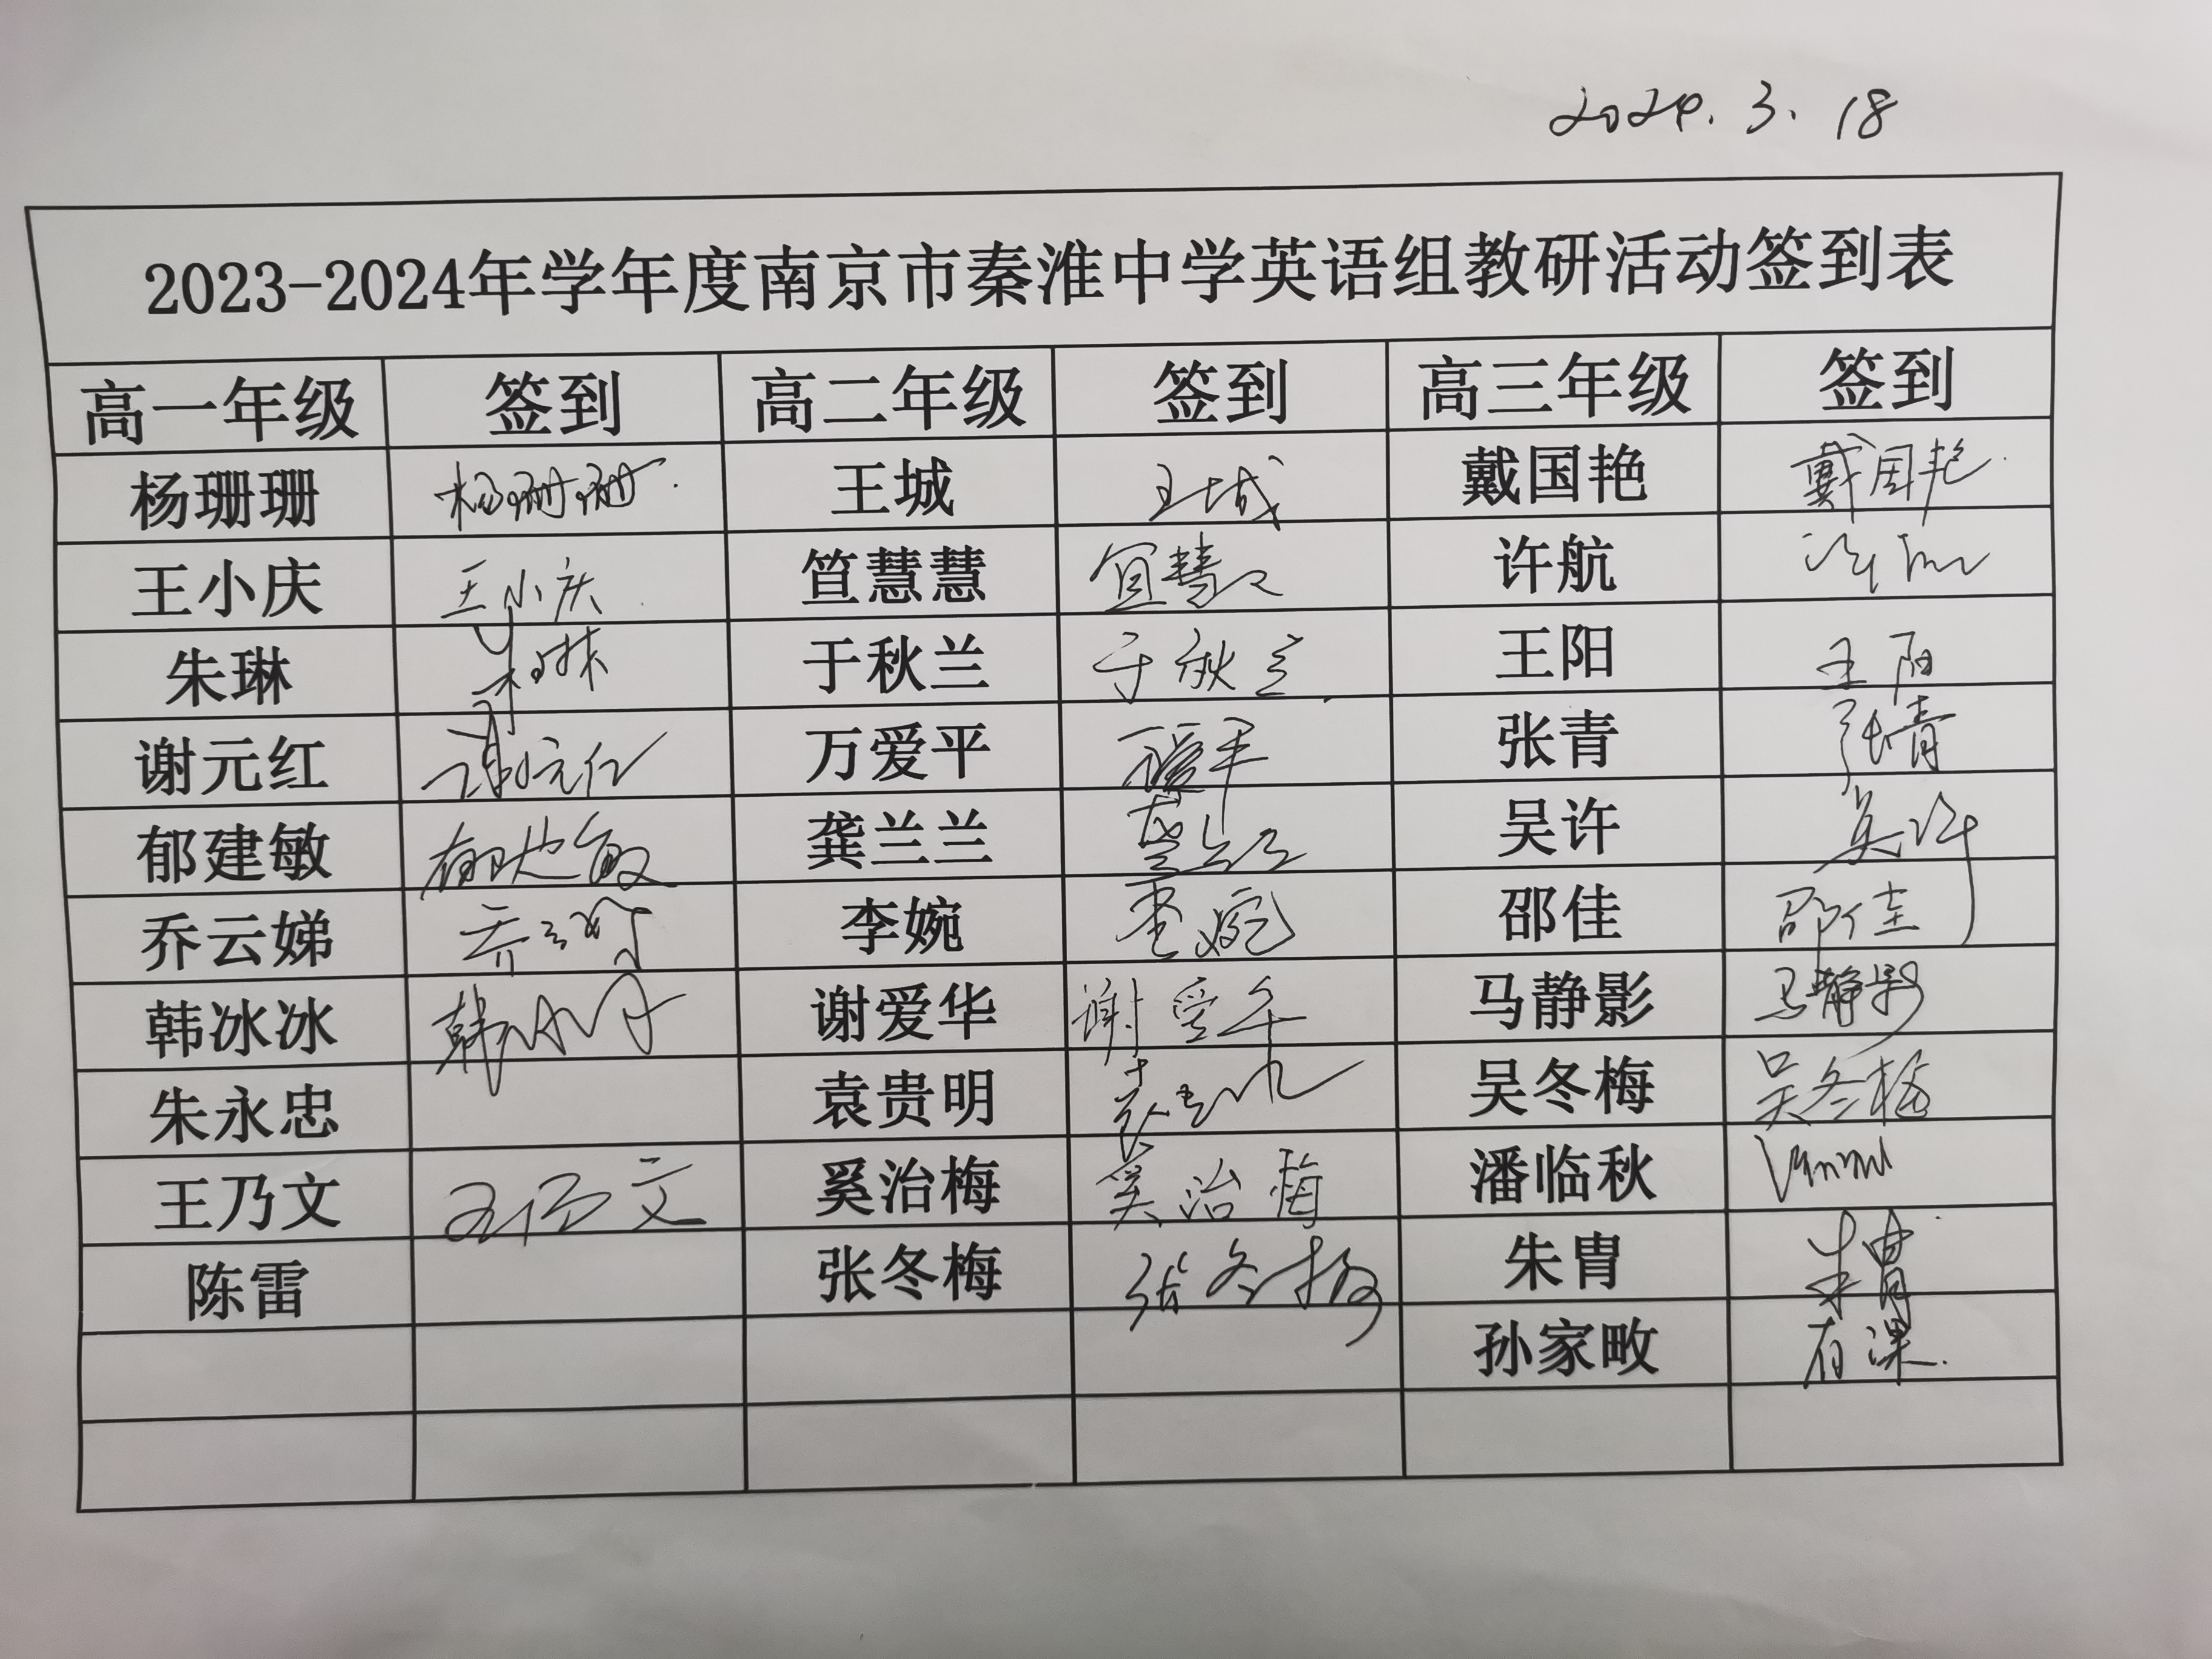 2024.3.18
2023-2024年学年度南京市秦淮中学英语组教研活动签到表
高一年级 签到 高二年级 签到 高三年级 签到
杨珊珊 杨珊珊 王城 王城 戴国艳 戴国艳
王小庆 王小庆 笪慧慧 笪慧〻 许航 许航
朱琳 朱琳 于秋兰 于秋兰 王阳 王阳
谢元红 谢元红 万爱平 万爱平 张青 张青
郁建敏 郁建敏 龚兰兰 龚兰兰 吴许 吴许
乔云娣 乔云娣 李婉 李婉 邵佳 邵佳
韩冰冰 韩冰冰 谢爱华 谢爱华 马静影 马静影
朱永忠 袁贵明 袁贵明 吴冬梅 吴冬梅
王乃文 王乃文 奚治梅 奚治梅 潘临秋
陈雷 张冬梅 张冬梅 朱胄 朱胄
孙家畋 有课.